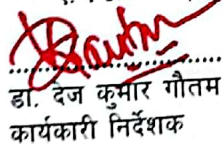 डा. देज कुमार गौतम
कार्यकारी निर्देशक